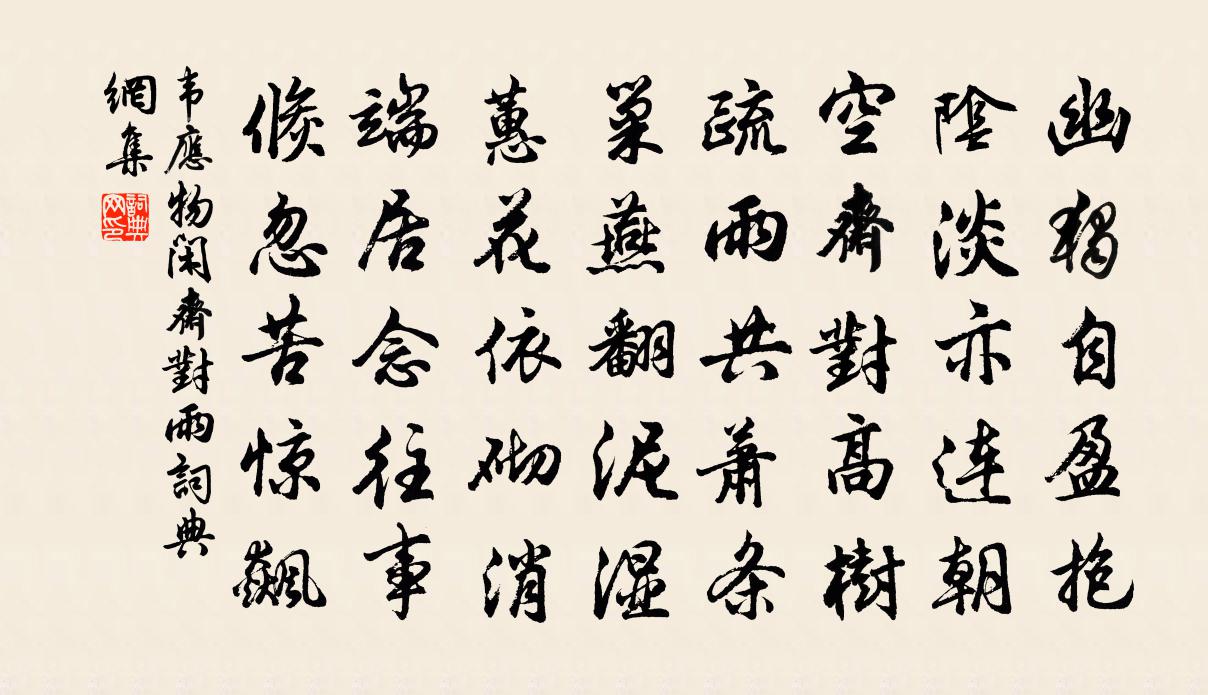 幽獨自盈抱
陰淡亦連朝
空齋對高樹
疏雨共蕭条
巢燕翻泥湿
蕙花依砌消
端居念往事
倏忽苦惊飆
韦應物闲齋對雨詞典
網集
詞典
网印